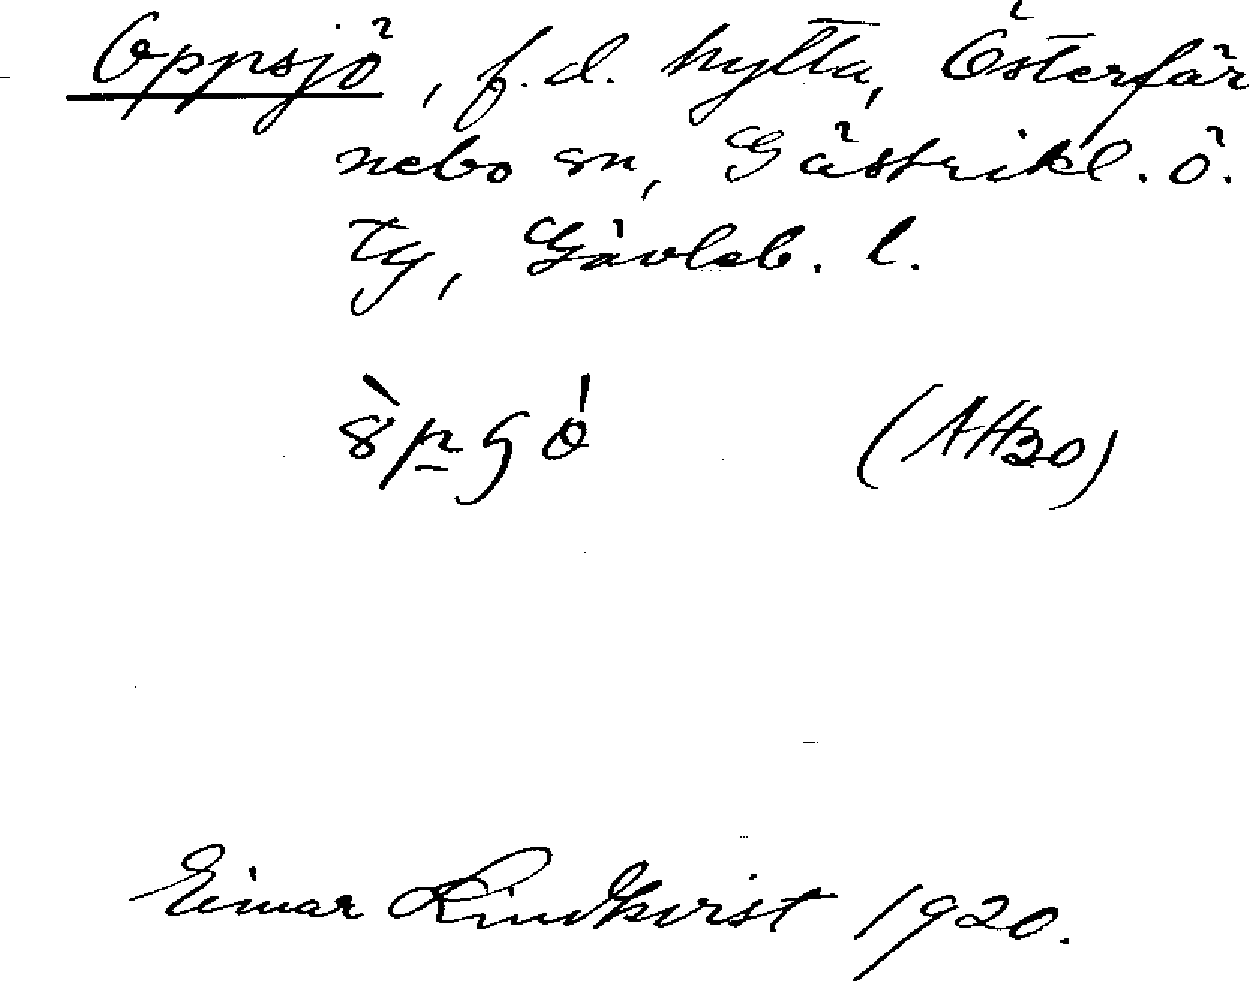 Oppsjö, f.d. hytta, Österfär
nebo sn, Gästrikl. ö.
Tg, Gävleb. l.
(AH20)
Einar Lindkvist 1920.